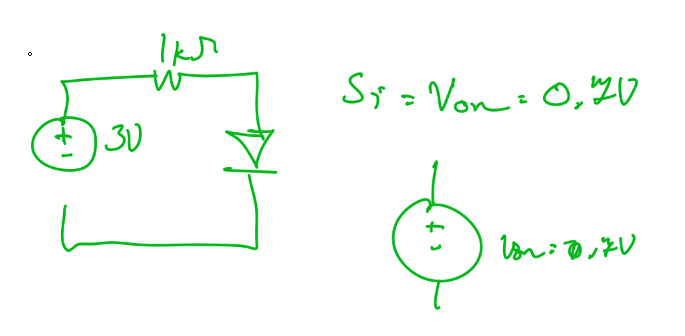 1kΩ
+
-
3V
Si = Von = 0,7V
+
-
Von = 0,7V